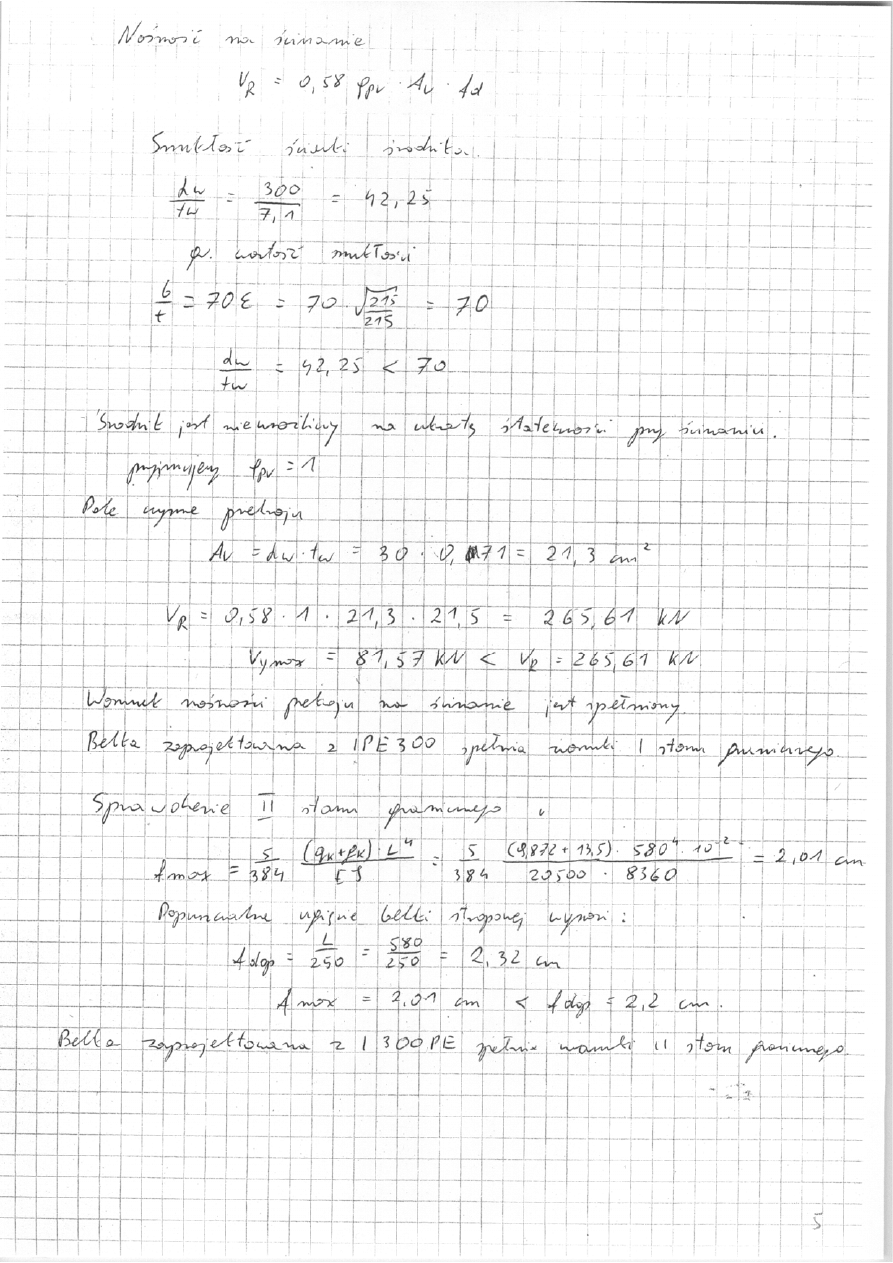 Nośność na ścinanie
V_R = 0,58 φpv · Av · fd
Smukłość ścianki środnika.
dw/tw = 300/7,1 = 42,25
gr. wartość smukłości
b/t = 70ε = 70 · √215/215 = 70
dw/tw = 42,25 < 70
Środnik jest niewrażliwy na utratę stateczności przy ścinaniu.
przyjmujemy φpv = 1
Pole czynne przekroju
Av = dw · tw = 30 · 0,71 = 21,3 cm²
V_R = 0,58 · 1 · 21,3 · 21,5 = 265,61 kN
Vymax = 81,57 kN < V_R = 265,61 kN
Warunek nośności przekroju na ścinanie jest spełniony.
Belka zaprojektowana z IPE 300 spełnia warunki I stanu granicznego.
Sprawdzenie II stanu granicznego
fmax = 5/384 (qk+pk) · L⁴/EJ = 5/384 (9,872 + 13,5) · 580⁴ · 10⁻²/20500 · 8360 = 2,01 cm
Dopuszczalne ugięcie belki stropowej wynosi :
fdop = L/250 = 580/250 = 2,32 cm
fmax = 2,01 cm < fdop = 2,2 cm.
Belka zaprojektowana z I 300PE spełnia warunki II stanu granicznego.
5